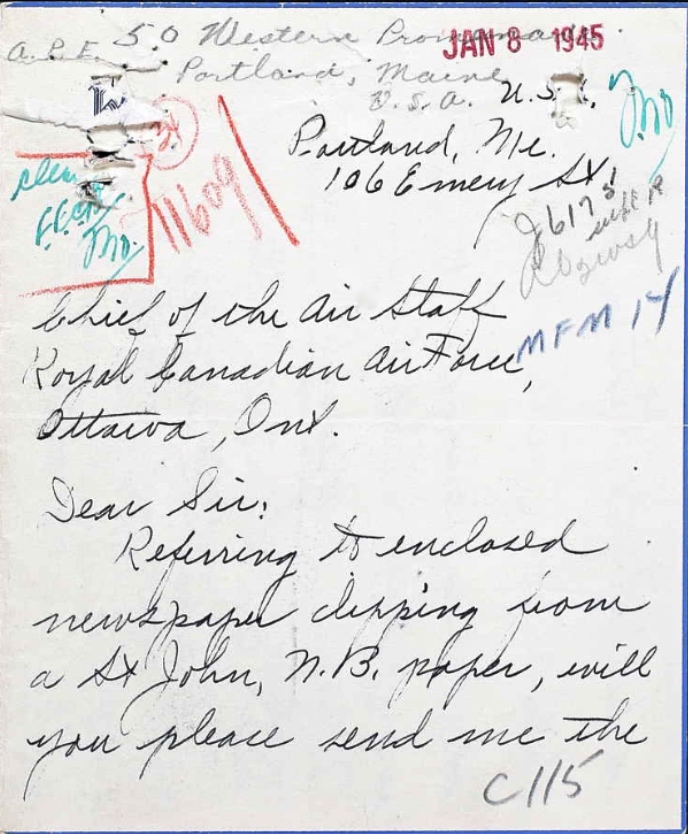 A.P.E. 50 Western Promenade
JAN 8 1945
Portland, Maine
U.S.A. U.S.A.
Portland, Me.
106 Emery St.
J6175
11609
MFM 14
Chief of the Air Staff
Royal Canadian Air Force,
Ottawa, Ont.
Dear Sir:
Referring to enclosed
newspaper clipping from
a St John, N.B. paper, will
you please send me the
C115